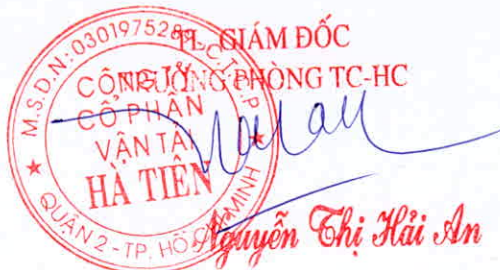 TL. GIÁM ĐỐC
TRƯỞNG PHÒNG TC-HC
M.S.D.N: 0301975289-C.T.C.P
CÔNG TY
CỔ PHẦN
VẬN TẢI
HÀ TIÊN
QUẬN 2 - TP. HỒ CHÍ MINH
Nguyễn Thị Hải An